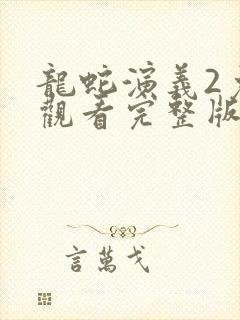 龍蛇演義2
觀看完整版
言萬戈